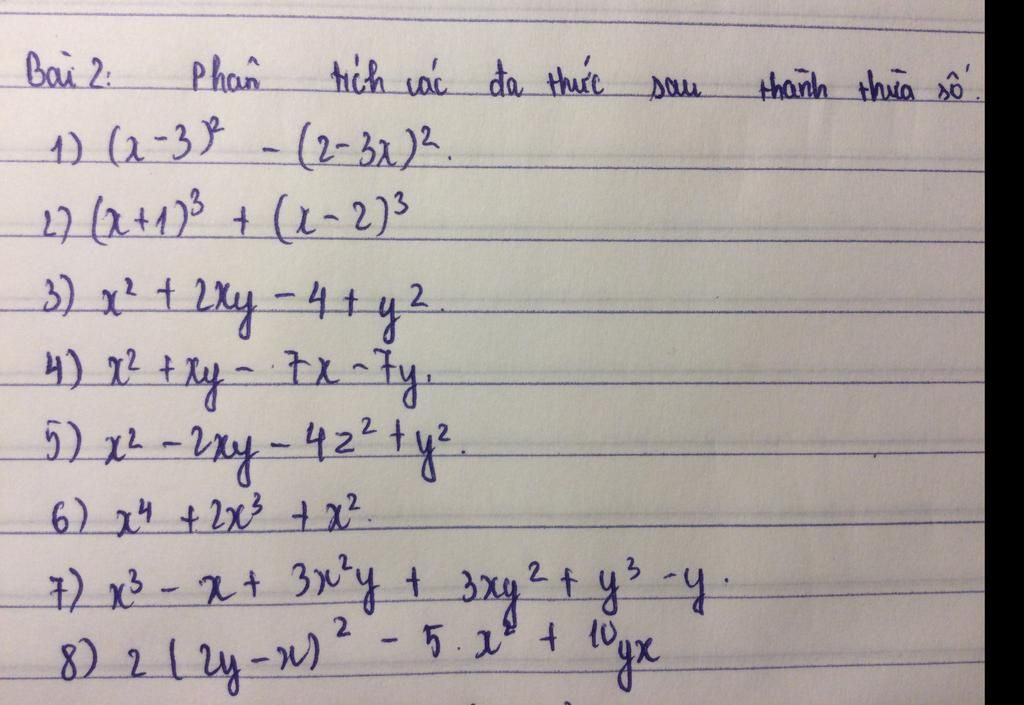 Bài 2: Phân tích các đa thức sau thành thừa số.
1) (x-3)² - (2-3x)².
2) (x+1)³ + (x-2)³
3) x² + 2xy - 4 + y².
4) x² + xy - 7x - 7y.
5) x² - 2xy - 4z² + y².
6) x⁴ + 2x³ + x².
7) x³ - x + 3x²y + 3xy² + y³ - y.
8) 2(2y-x)² - 5.x² + 10yx